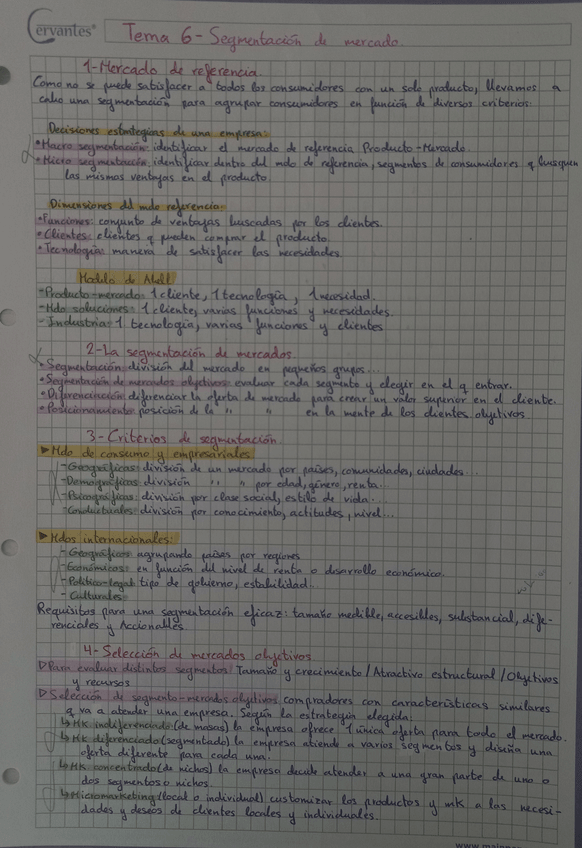 Cervantes®
Tema 6 - Segmentación de mercado.
1-Mercado de referencia.
Como no se puede satisfacer a todos los consumidores con un solo producto, llevamos a
cabo una segmentación para agrupar consumidores en función de diversos criterios:
Decisiones estrategias de una empresa:
•Macro segmentación: identificar el mercado de referencia Producto-Mercado.
•Micro segmentación: identificar dentro del mdo de referencia, segmentos de consumidores q busquen
las mismas ventajas en el producto.
Dimensiones del mdo referencia:
•Funciones: conjunto de ventajas buscadas por los clientes.
•Clientes: clientes q pueden comprar el producto.
•Tecnología: manera de satisfacer las necesidades.
Modelo de Abell
-Producto-mercado: 1 cliente, 1 tecnología, 1 necesidad.
-Mdo soluciones: 1 cliente, varias funciones y necesidades.
-Industria: 1 tecnología, varias funciones y clientes
2-La segmentación de mercados.
•Segmentación división del mercado en pequeños grupos...
•Segmentación de mercados objetivos: evaluar cada segmento y elegir en el q entrar.
•Diferenciación diferenciar la oferta de mercado para crear un valor superior en el cliente.
•Posicionamiento posición de la " " en la mente de los clientes objetivos.
3-Criterios de segmentación.
▶Mdo de consumo y empresariales
-Geográficas: división de un mercado por países, comunidades, ciudades...
-Demográficas división " " por edad, género, renta...
-Psicográficas: división por clase social, estilo de vida...
-Conductuales: división por conocimiento, actitudes, nivel...
▶Mdos internacionales:
-Geográficos agrupando países por regiones
-Económicos: en función del nivel de renta o desarrollo económico.
-Político-legal: tipo de gobierno, estabilidad.
-Culturales
Requisitos para una segmentación eficaz: tamaño medible, accesibles, substancial, dife-
renciales y Accionables
4-Selección de mercados objetivos
▷Para evaluar distintos segmentos: Tamaño y crecimiento/Atractivo estructural/Objetivos
y recursos
▷Selección de segmento-mercados objetivos compradores con características similares
q va a atender una empresa. Según la estrategia elegida:
↳Mk indiferenciado (de masas) la empresa ofrece 1 única oferta para todo el mercado.
↳Mk diferenciado (segmentado) la empresa atiende a varios segmentos y diseña una
oferta diferente para cada una.
↳Mk concentrado (de nichos) la empresa decide atender a una gran parte de uno o
dos segmentos o nichos.
↳Micromarketing (local o individual) customizar los productos y mk a las necesi-
dades y deseos de clientes locales y individuales.